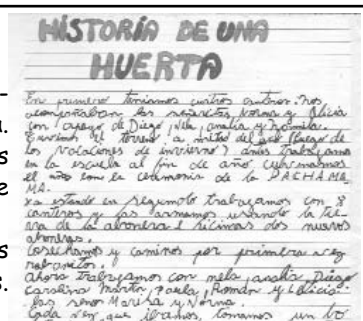 HISTORIA DE UNA
HUERTA
En primero teniamos cuatros canteros. Nos
acompañaban las señoritas Norma y Alicia
con apoyo de Diego, Nela, analia y
el terreno a mitad del año (luego de
las vacaciones de invierno) años trabajamos
en la escuela al fin de año culminamos
el año con la ceremonia de la PACHAMA
MA.
ya estando en segundo trabajamos con 8
canteros y las armamos usando la tie-
rra de la abonera e hicimos dos nuevas
aboneras.
Cosechamos y comimos por primera vez
rabanitos.
ahora trabajamos con nela, analia, Diego
Carolina Martin, paula, Román y Alicia
las seños Marisa y Norma.
Cada vez que ibamos, tomamos un
.
s
e
s
.